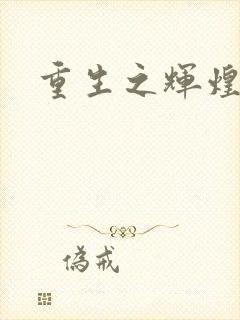 重生之輝煌
偽戒